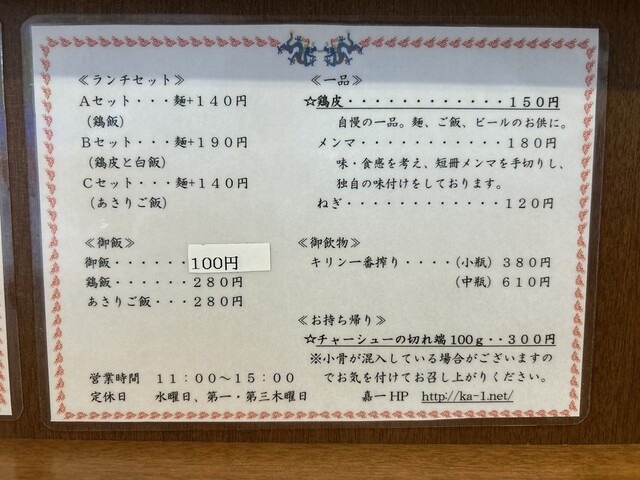 ≪ランチセット≫
Aセット・・・麺+140円
(鶏飯)
Bセット・・・麺+190円
(鶏皮と白飯)
Cセット・・・麺+140円
(あさりご飯)
≪御飯≫
御飯・・・・・・100円
鶏飯・・・・・・280円
あさりご飯・・・280円
≪一品≫
☆鶏皮・・・・・・・・・・・・150円
自慢の一品。麺、ご飯、ビールのお供に。
メンマ・・・・・・・・・・・・180円
味・食感を考え、短冊メンマを手切りし、
独自の味付けをしております。
ねぎ・・・・・・・・・・・・・120円
≪御飲物≫
キリン一番搾り・・・・(小瓶)380円
(中瓶)610円
≪お持ち帰り≫
☆チャーシューの切れ端100g・・300円
※小骨が混入している場合がございますの
でお気を付けてお召し上がりください。
営業時間 11:00~15:00
定休日 水曜日、第一・第三木曜日
嘉一HP http://ka-1.net/